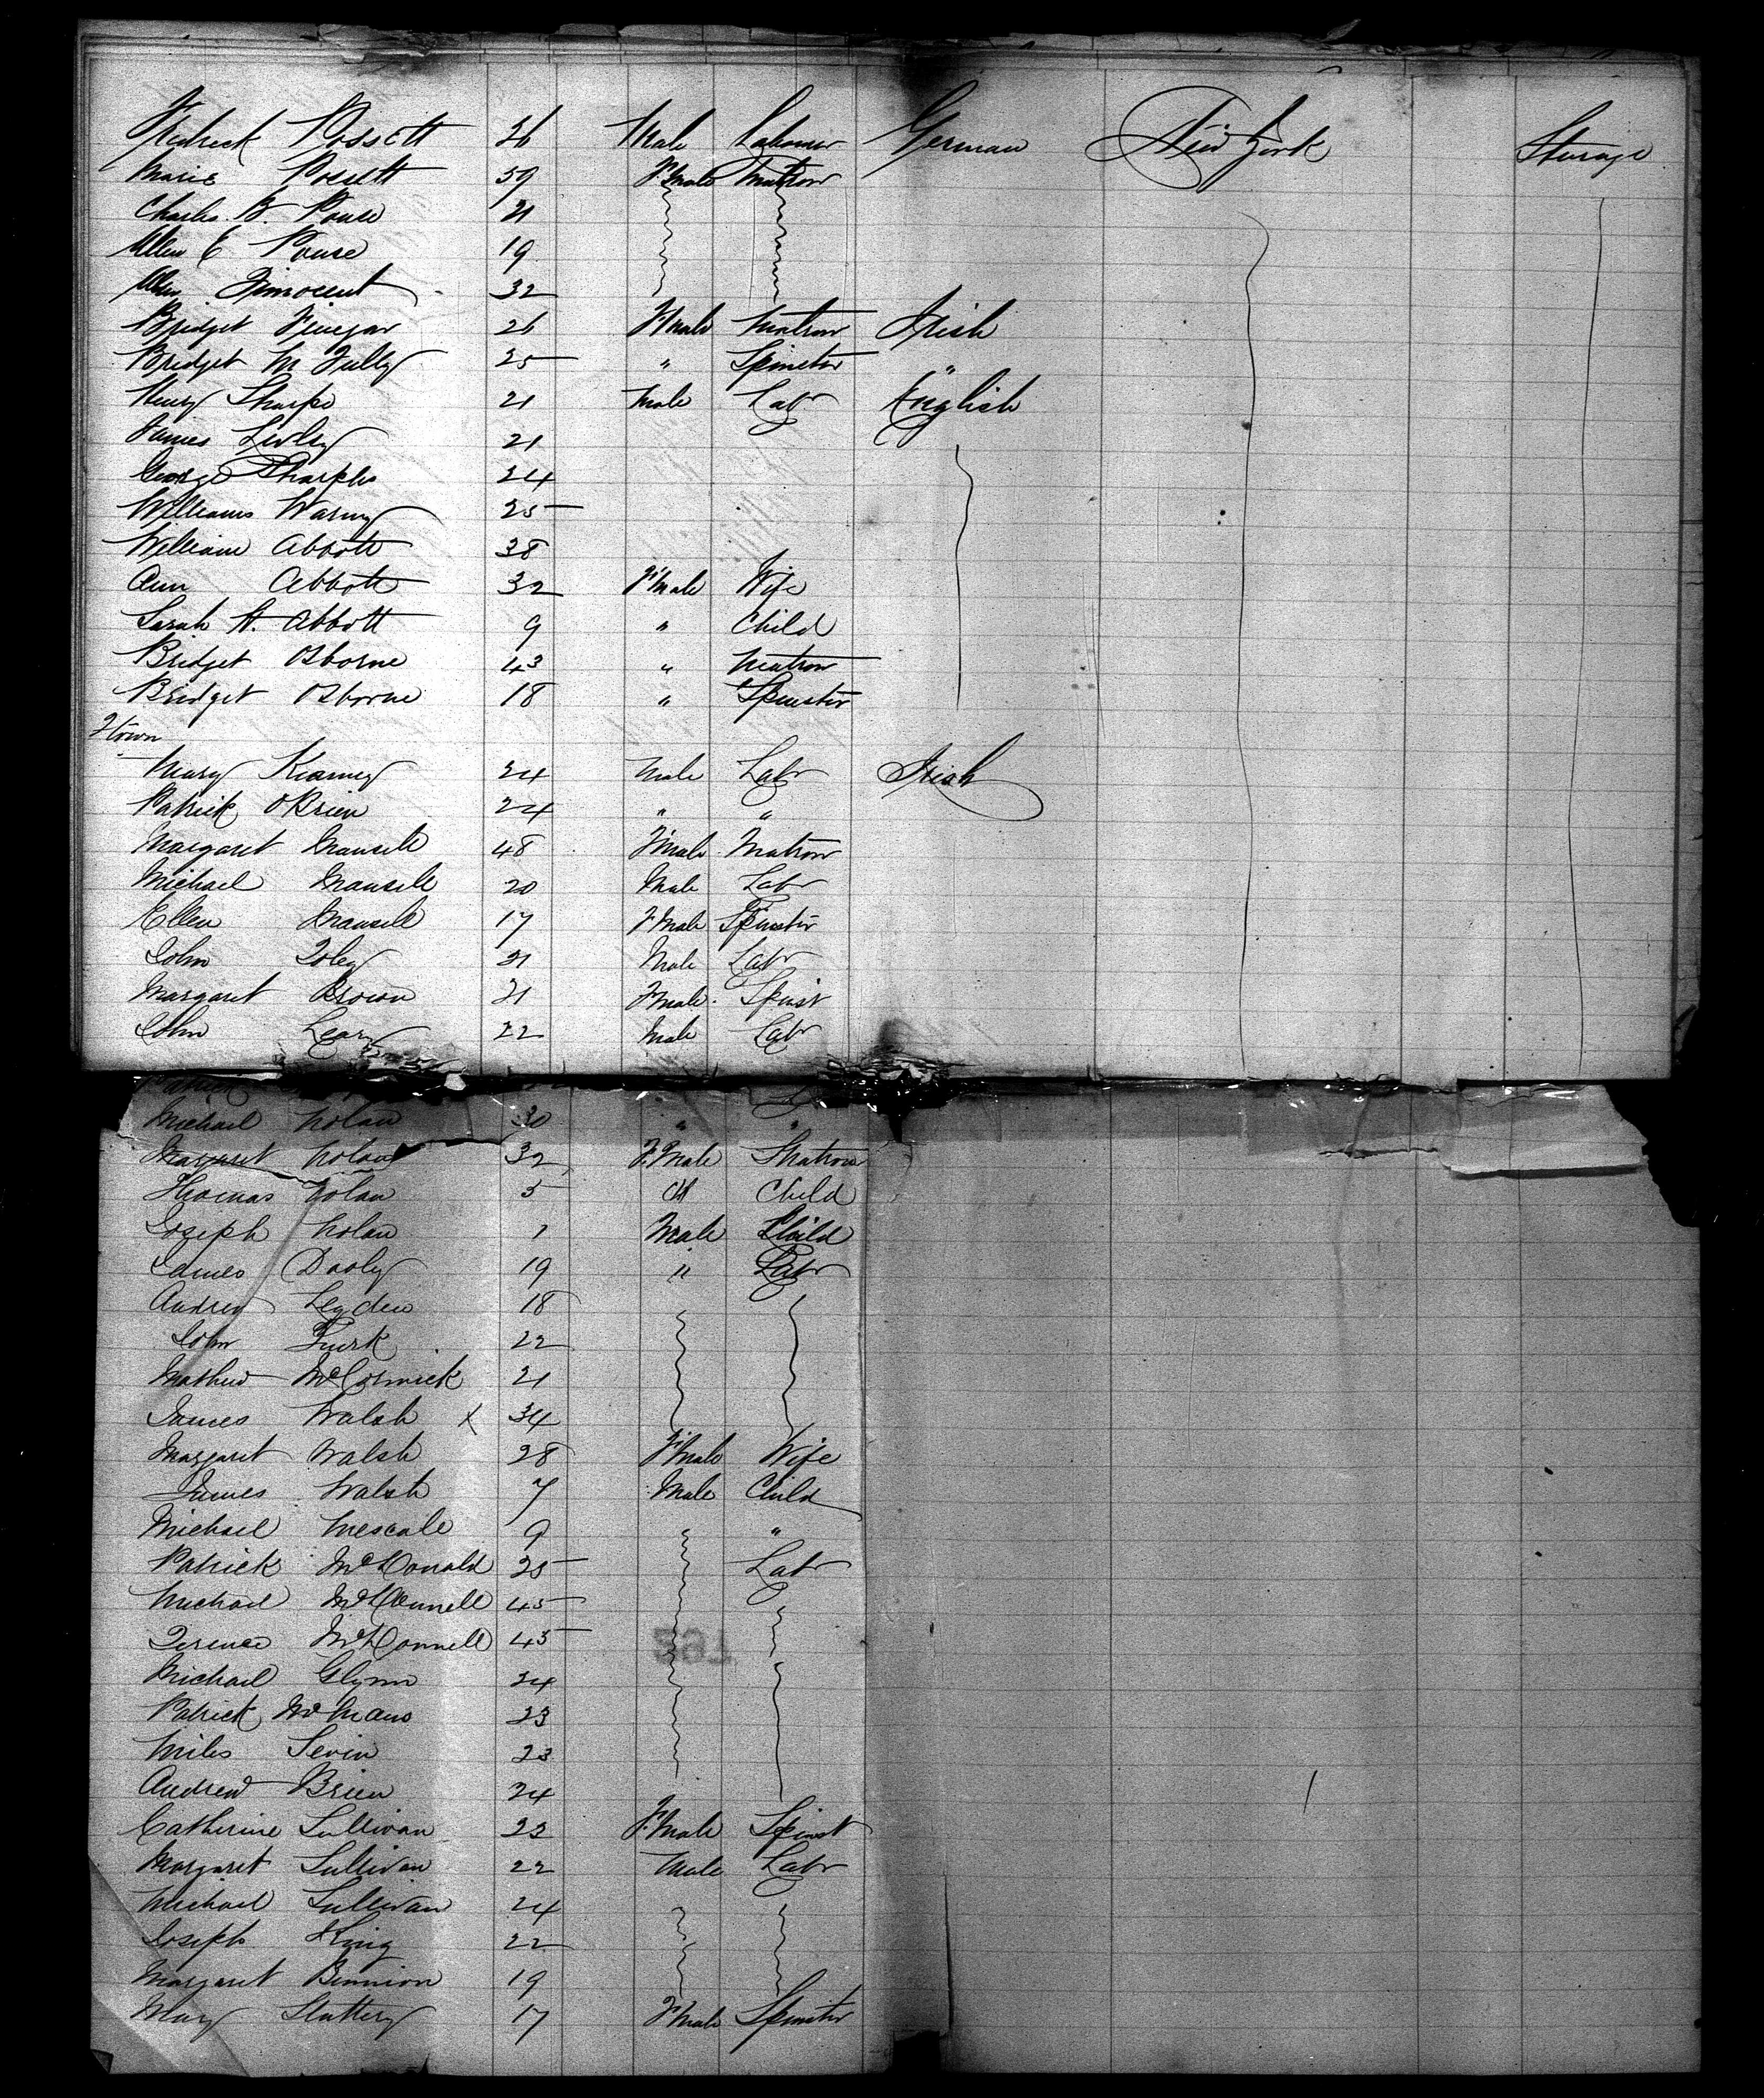 Fredrick Possett 26 Male Labourer German New York Sterage
Marie Possett 59 F.Male Matron
Charles B. Pouse 21
Ellen E Pouse 19
Innocent 32
Bridget Finegan 26 F.Male Matron Irish
Bridget McFully 25 " Spinster "
Henry Sharpe 21 Male Labr English
James 21
George Sharples 24
Williams Waring 25
William Abbott 38
Ann Abbott 32 F.Male Wife
Sarah A. Abbott 9 " Child
Bridget Osborne 43 " Matron
Bridget Osborne 18 " Spinster
Qtown
Mary Kearney 24 Male Labr Irish
Patrick OBrien 24 " "
Margaret Mansell 48 F.Male Matron
Michael Mansell 20 Male Labr
Ellen Mansell 17 F.Male Spinster
John Foley 21 Male Labr
Margaret Brown 21 F.Male Spinst
John Leary 22 Male Labr
Patrick
Michael Nolan 30 " "
Margaret Nolan 32 F.Male Matron
Thomas Nolan 5 " Child
Joseph Nolan 1 Male Child
James Dooly 19 " Labr
Andrew Leyden 18
John Turk 22
Mathew McCormick 21
James Walsh X 34
Margaret Walsh 28 F.Male Wife
James Walsh 7 Male Child
Michael Mescale 9 "
Patrick McDonald 25 Labr
Michael McConnell 45
Terence McConnell 45
Michael Glynn 24
Patrick McManus 23
Miles Levin 23
Andrew Brien 24
Catherine Sullivan 23 F.Male Spinst
Margaret Sullivan 22 Male Labr
Michael Sullivan 24
Joseph King 22
Margaret Binnion 19
Mary Slattery 17 F.Male Spinster